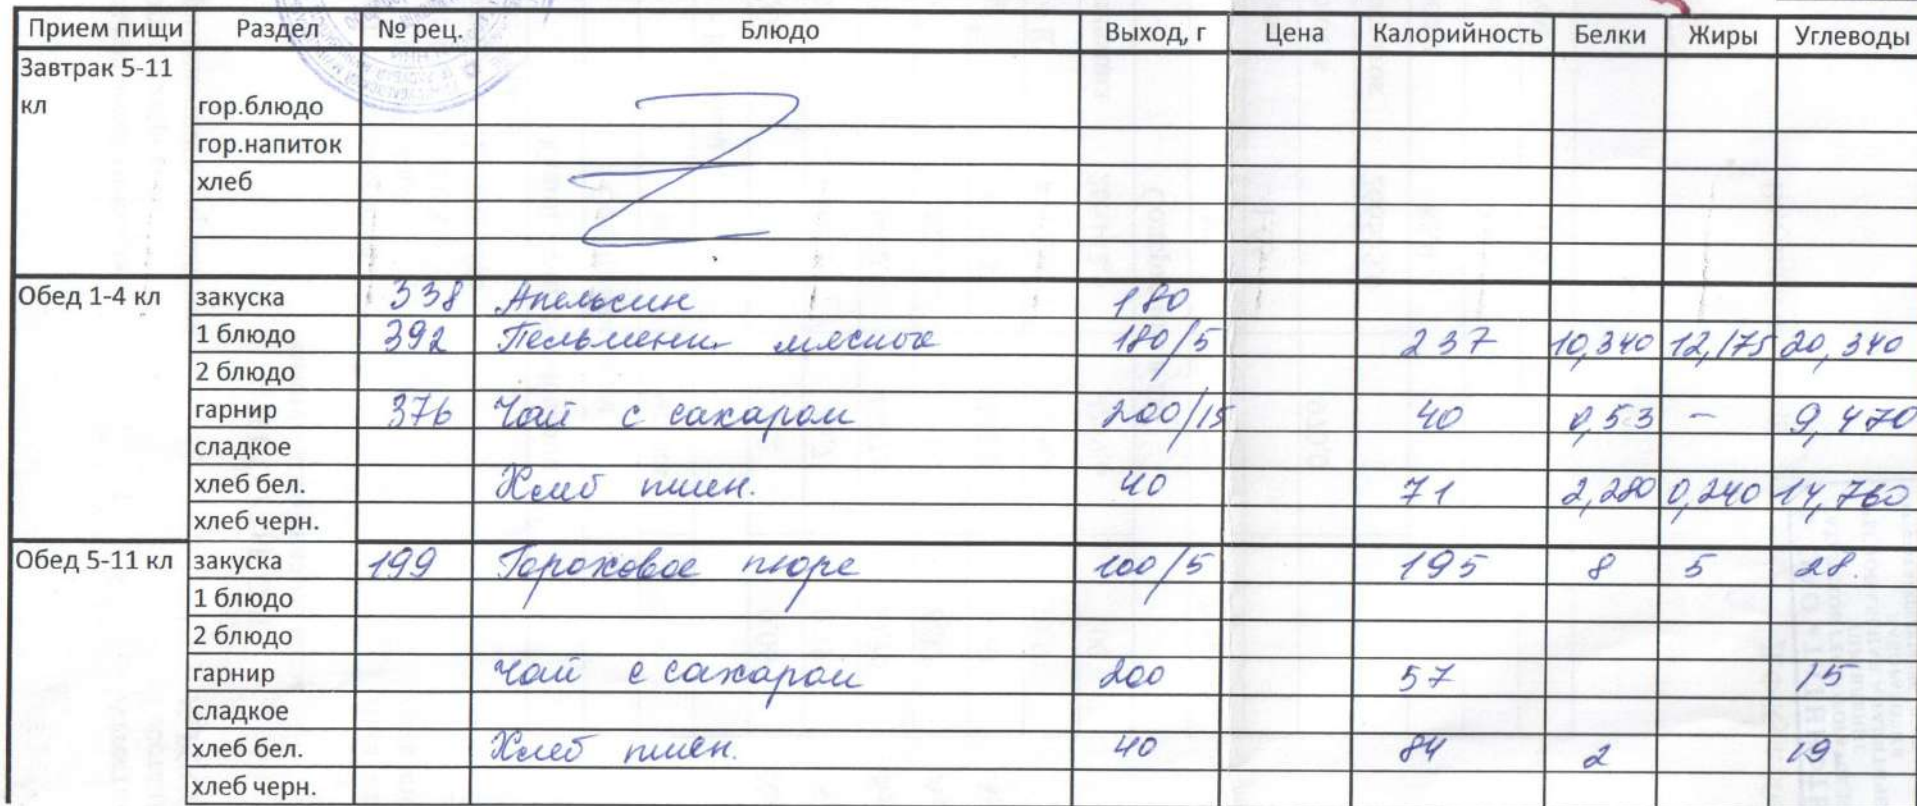 Прием пищи Раздел № рец. Блюдо Выход, г Цена Калорийность Белки Жиры Углеводы
Завтрак 5-11
кл гор.блюдо
гор.напиток
хлеб
Обед 1-4 кл закуска 338 Апельсин 180
1 блюдо 392 Пельмени мясные 180/5 237 10,340 12,175 20,340
2 блюдо
гарнир 376 Чай с сахаром 200/15 40 0,53 - 9,470
сладкое
хлеб бел. Хлеб пшен. 40 71 2,280 0,240 14,760
хлеб черн.
Обед 5-11 кл закуска 199 Гороховое пюре 100/5 195 8 5 28.
1 блюдо
2 блюдо
гарнир чай с сахаром 200 57 15
сладкое
хлеб бел. Хлеб пшен. 40 84 2 19
хлеб черн.